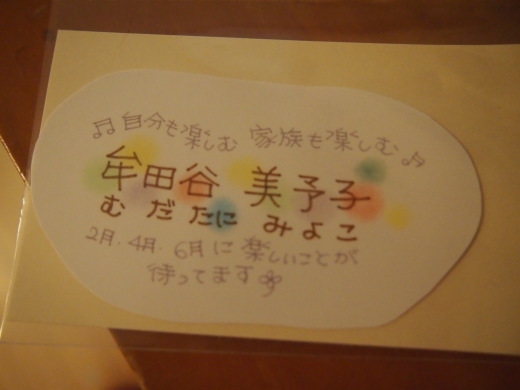 ♫自分も楽しむ 家族も楽しむ♫
牟田谷 美予子
むだたに みよこ
2月.4月.6月に楽しいことが
待ってます